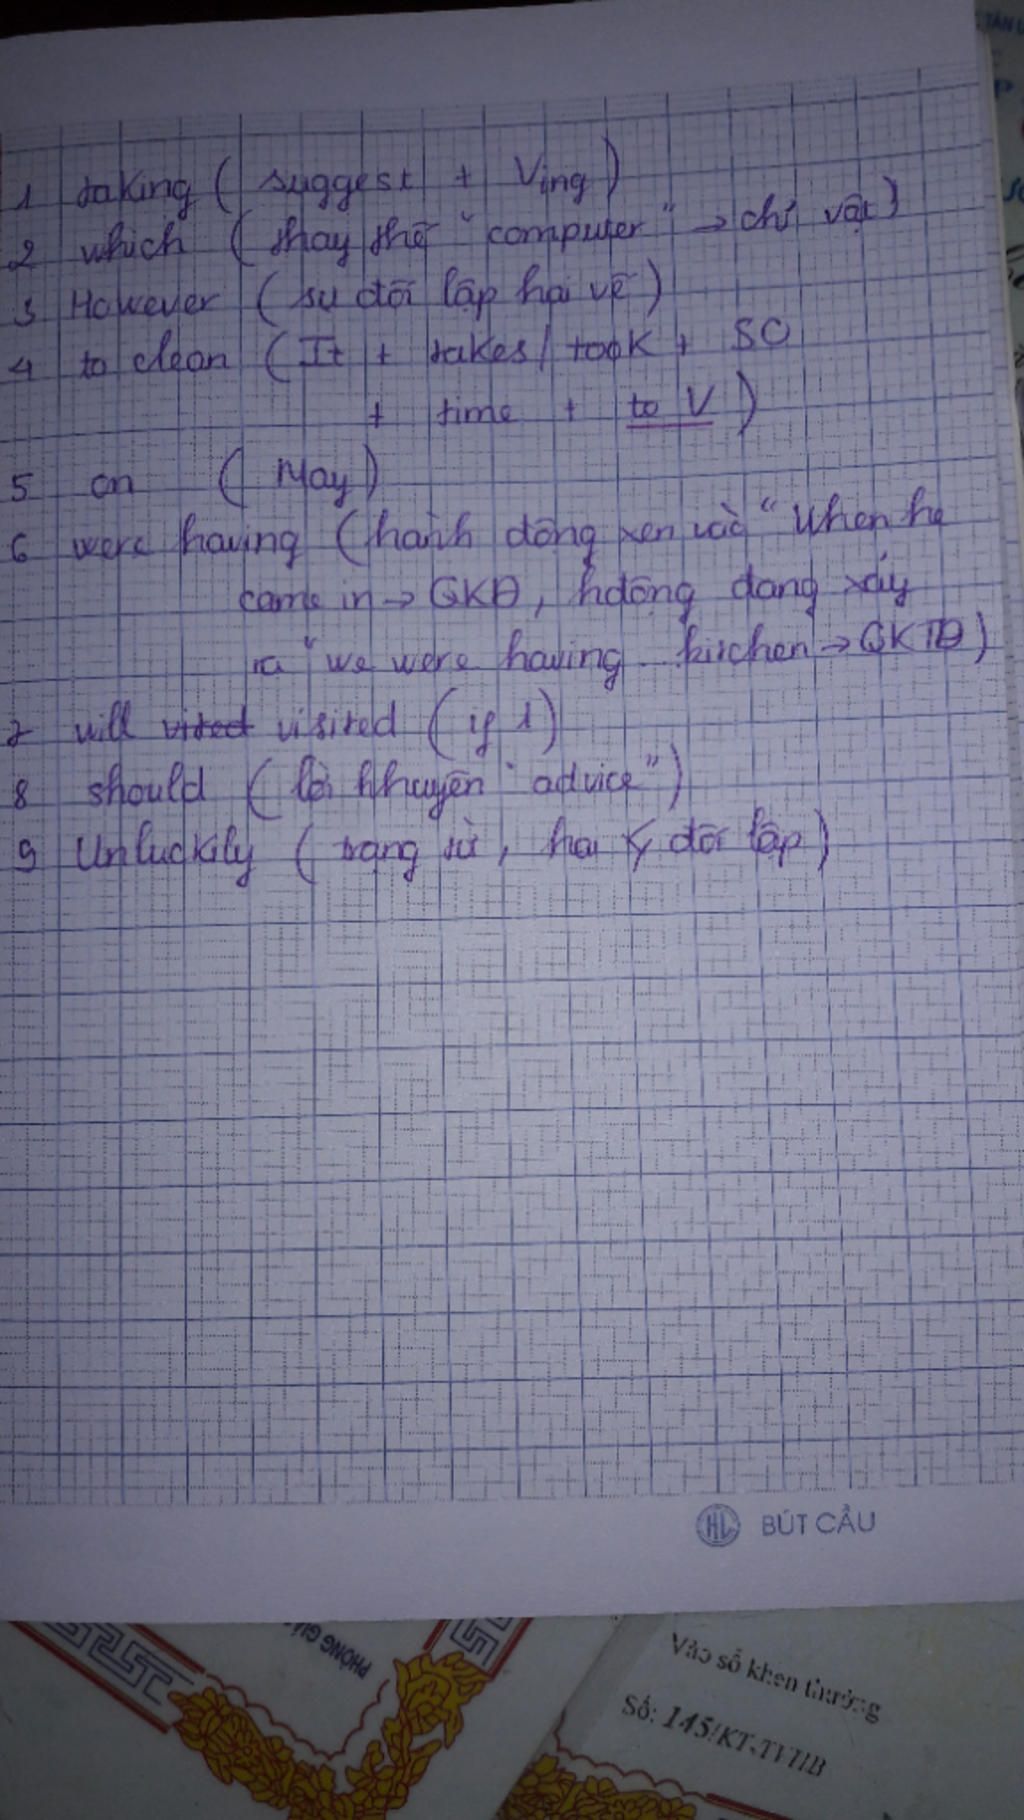 1 taking ( suggest + Ving )
2 which ( thay thế "computer" → chỉ vật )
3 However ( sự đối lập hai vế )
4 to clean ( It + takes / took + SO
+ time + to V )
5 on ( May )
6 were having ( hành động xen vào "When he
came in → QKĐ, hđộng đang xảy
ra "we were having kitchen → QKTD )
7 will visited ( if 1 )
8 should ( lời khuyên "advice" )
9 Unluckily ( trạng từ, hai ý đối lập )
HL BÚT CẦU
PHÒNG GIÁ
Vào sổ khen thưởng
Số: 145/KT-